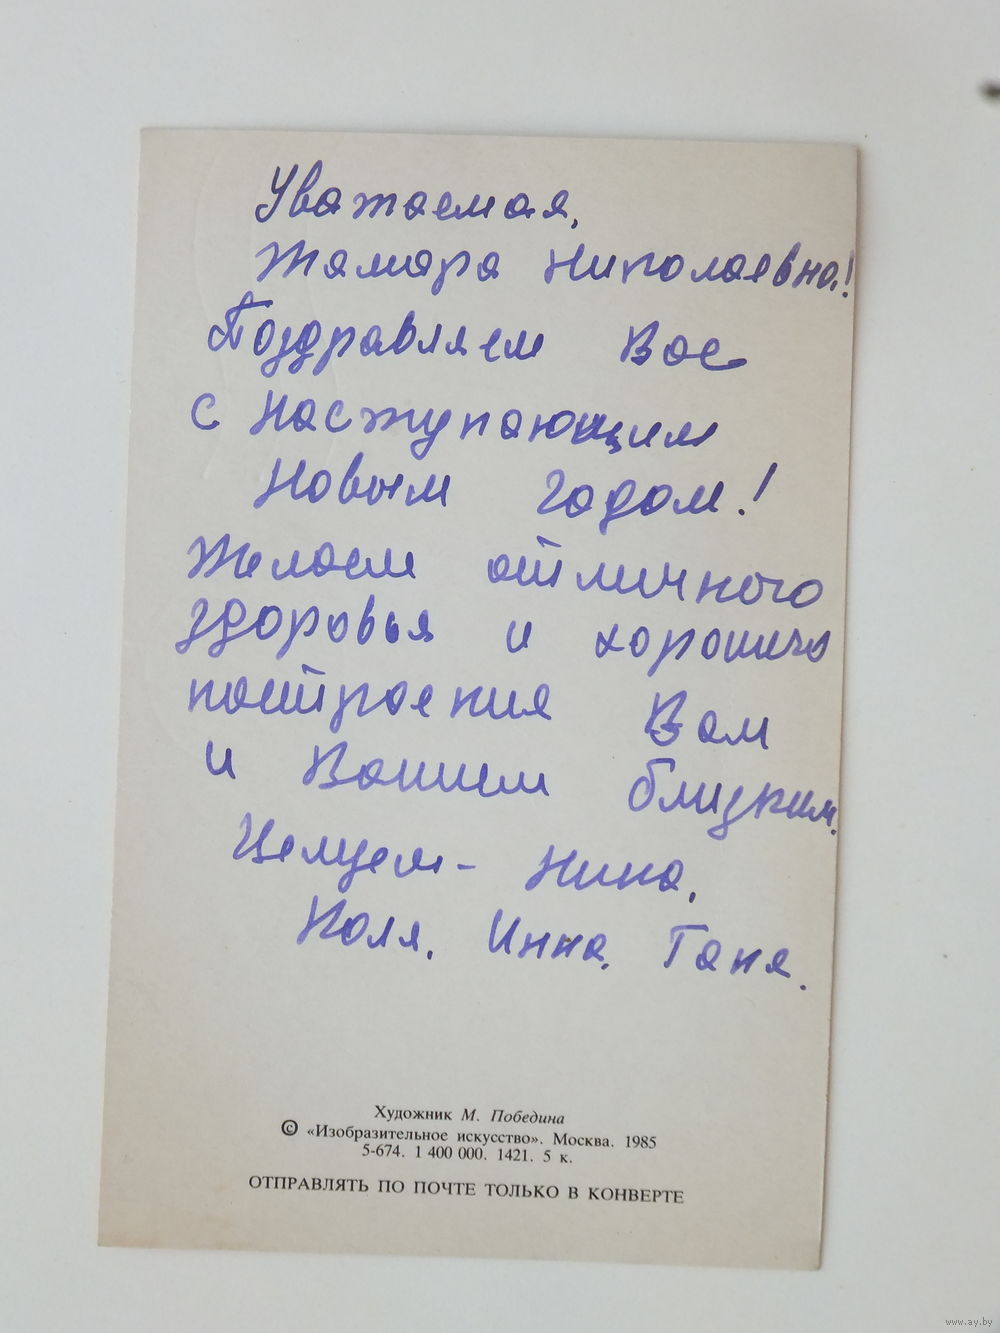 Уважаемая,
Тамара Николаевна!
Поздравляем Вас
с наступающим
Новым годом!
Желаем отличного
здоровья и хорошего
настроения Вам
и Вашим близким.
Целуем – Нина,
Коля, Инна, Таня.
Художник М. Победина
© «Изобразительное искусство». Москва. 1985
5-674. 1 400 000. 1421. 5 к.
ОТПРАВЛЯТЬ ПО ПОЧТЕ ТОЛЬКО В КОНВЕРТЕ
www.ay.by